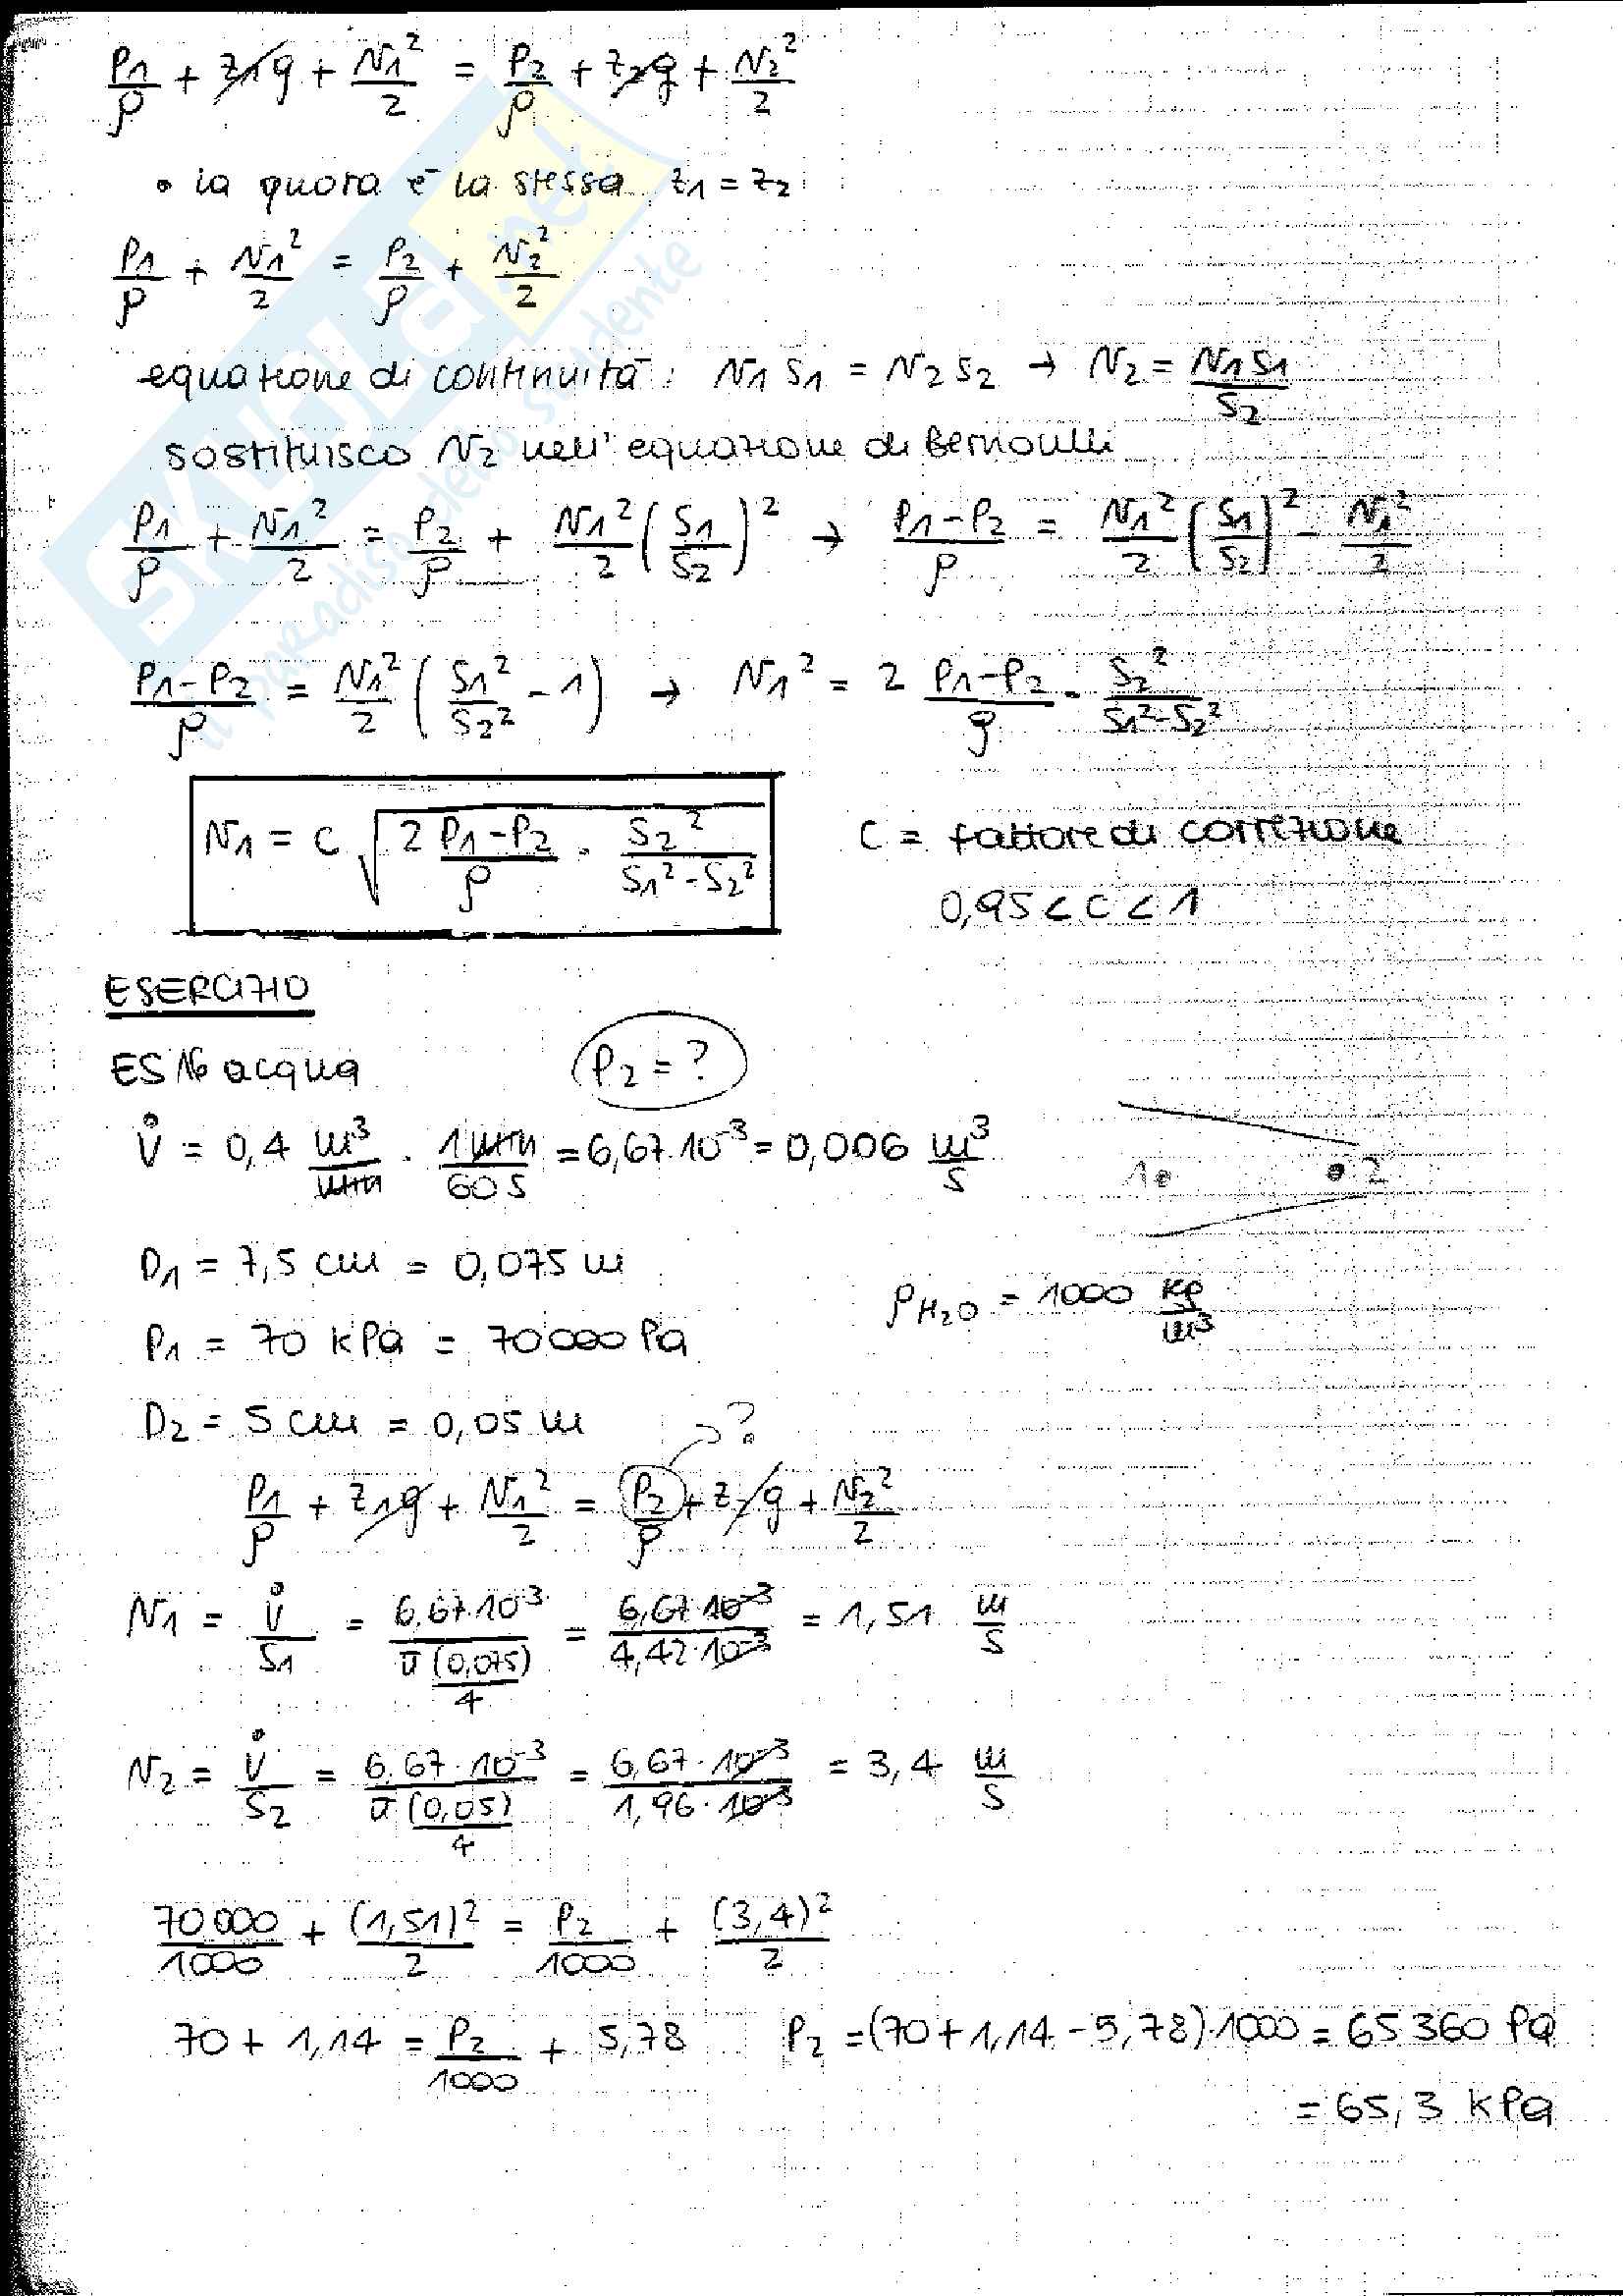 P1/ρ + z1g + N1²/2 = P2/ρ + z2g + N2²/2
• la quota è la stessa z1 = z2
P1/ρ + N1²/2 = P2/ρ + N2²/2
equazione di continuità: N1 S1 = N2 S2 → N2 = N1 S1/S2
sostituisco N2 nell'equazione di Bernoulli
P1/ρ + N1²/2 = P2/ρ + N1²/2 (S1/S2)² → P1-P2/ρ = N1²/2 (S1/S2)² - N1²/2
P1-P2/ρ = N1²/2 (S1²/S2² - 1) → N1² = 2 P1-P2/ρ · S2²/S1²-S2²
N1 = C √(2 P1-P2/ρ · S2²/S1²-S2²) C = fattore di correzione
0,95 < C < 1
ESERCIZIO
ES 16 acqua P2 = ?
V̊ = 0,4 m³/min · 1min/60 s = 6,67·10⁻³ = 0,006 m³/s
1 2
D1 = 7,5 cm = 0,075 m
ρH2O = 1000 kg/m³
P1 = 70 kPa = 70000 Pa
D2 = 5 cm = 0,05 m
?
P1/ρ + z1g + N1²/2 = P2/ρ + z2g + N2²/2
N1 = V̊/S1 = 6,67·10⁻³/π(0,075)/4 = 6,67·10⁻³/4,42·10⁻³ = 1,51 m/s
N2 = V̊/S2 = 6,67·10⁻³/π(0,05)/4 = 6,67·10⁻³/1,96·10⁻³ = 3,4 m/s
70000/1000 + (1,51)²/2 = P2/1000 + (3,4)²/2
70 + 1,14 = P2/1000 + 5,78 P2 = (70+1,14-5,78)·1000 = 65360 Pa
= 65,3 kPa
SKUOLA.net
il paradiso dello studente